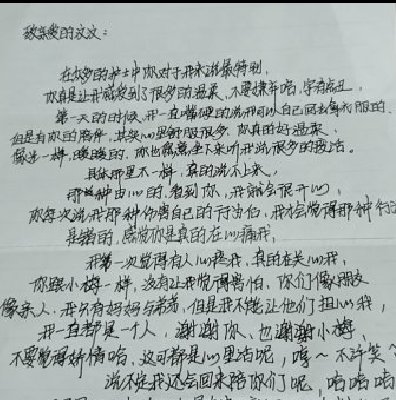 敬亲爱的文文：
在众多的护士中你对于我来说最特别，
你真是让我感受到了很多的温柔，不要嫌弃哈，字有点丑，
第一天的时候，我一直嘴硬的说我可以自己回去拿衣服的，
但是有你的陪伴，其实心里舒服很多，你真的好温柔，
像光一样，暖暖的，你也愿意坐下来听我说很多的废话。
具体那里不一样，真的说不上来，
那种由心的，看到你，我就会很开心，
你每次说我那种伤害自己的行为后，我才会觉得那种行
是错的，感觉你是真的在心痛我，
我第一次觉得有人心疼我，真的在关心我，
你跟小梅一样，没有让我觉得害怕，你们像朋友
像亲人，我只有好好与爷爷，但是我不能让他们担心我，
我一直都是一个人，谢谢你、也谢谢小梅
不要觉得矫情哈，这可都是心里话呢，哼～不许笑
说不定我还会回来陪你们呢，哈哈哈